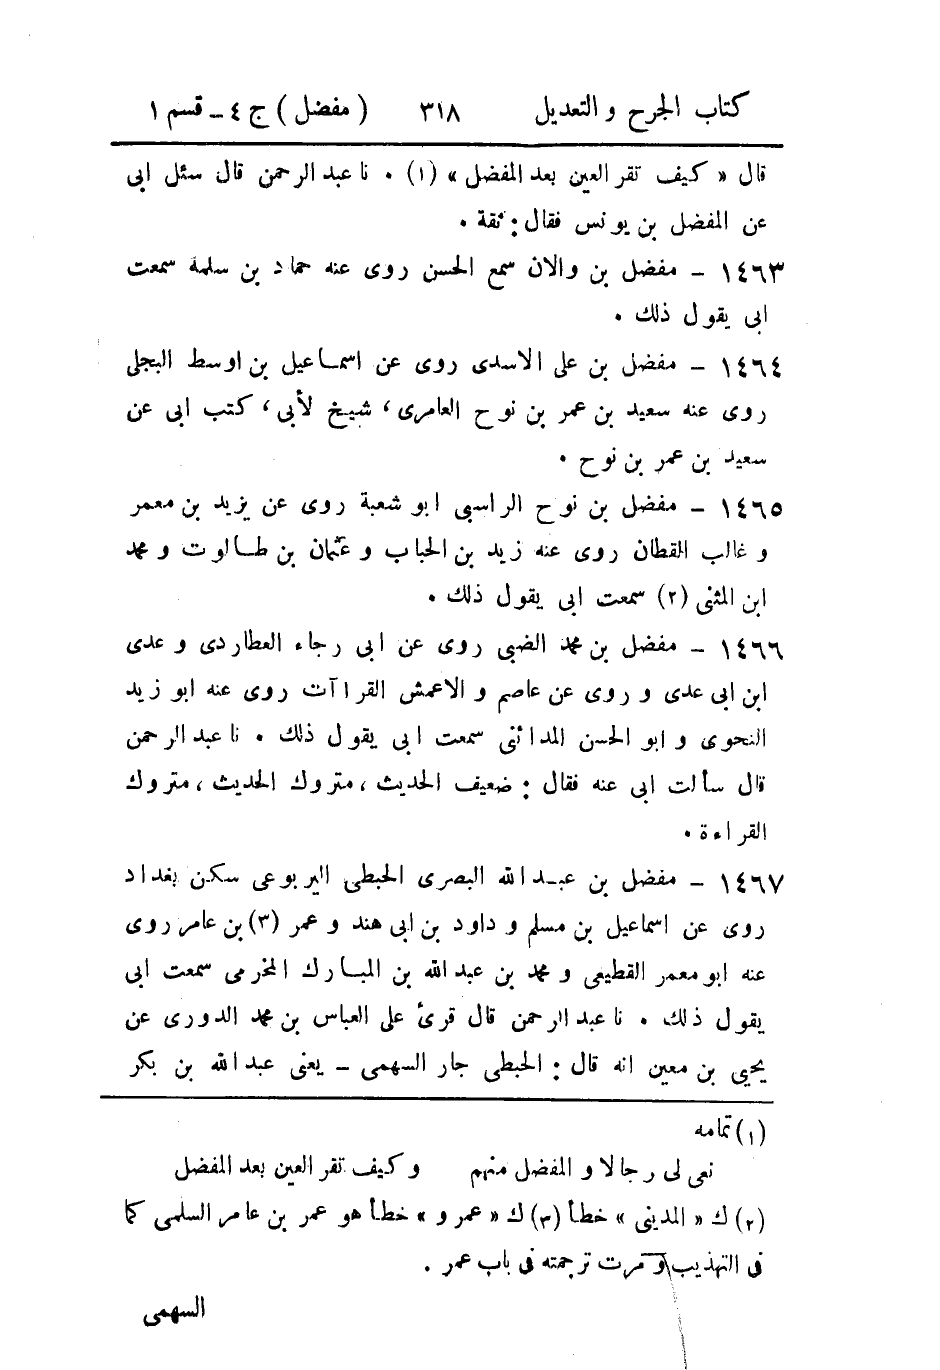 كتاب الجرح والتعديل ٣١٨ (مفضل) ج ٤ – قسم ١
قال « كيف تقر العين بعد المفضل » (١) . نا عبد الرحمن قال سئل ابى
عن المفضل بن يونس فقال : ثقة .
١٤٦٣ – مفضل بن والان سمع الحسن روى عنه حماد بن سلمة سمعت
ابى يقول ذلك .
١٤٦٤ – مفضل بن على الاسدى روى عن اسماعيل بن اوسط البجلى
روى عنه سعيد بن عمر بن نوح العامرى ، شيخ لأبى ، كتب ابى عن
سعيد بن عمر بن نوح .
١٤٦٥ – مفضل بن نوح الراسبى ابو شعبة روى عن يزيد بن معمر
و غالب القطان روى عنه زيد بن الحباب و عثمان بن طالوت و محمد
ابن المثنى (٢) سمعت ابى يقول ذلك .
١٤٦٦ – مفضل بن محمد الضبى روى عن ابى رجاء العطاردى و عدى
ابن ابى عدى و روى عن عاصم و الاعمش القراآت روى عنه ابو زيد
النحوى و ابو الحسن المدائنى سمعت ابى يقول ذلك . نا عبد الرحمن
قال سألت ابى عنه فقال : ضعيف الحديث ، متروك الحديث ، متروك
القراءة .
١٤٦٧ – مفضل بن عبد الله البصرى الحبطى اليربوعى سكن بغداد
روى عن اسماعيل بن مسلم و داود بن ابى هند و عمر (٣) بن عامر روى
عنه ابو معمر القطيعى و محمد بن عبد الله بن المبارك المخرمى سمعت ابى
يقول ذلك . نا عبد الرحمن قال قرئ على العباس بن محمد الدورى عن
يحيى بن معين انه قال : الحبطى جار السهمى – يعنى عبد الله بن بكر
(١) تمامه
نعى لى رجالا و المفضل منهم و كيف تقر العين بعد المفضل
(٢) ك « المدينى » خطأ (٣) ك « عمرو » خطأ هو عمر بن عامر السلمى كما
فى التهذيب و مرت ترجمته فى باب عمر .
السهمى